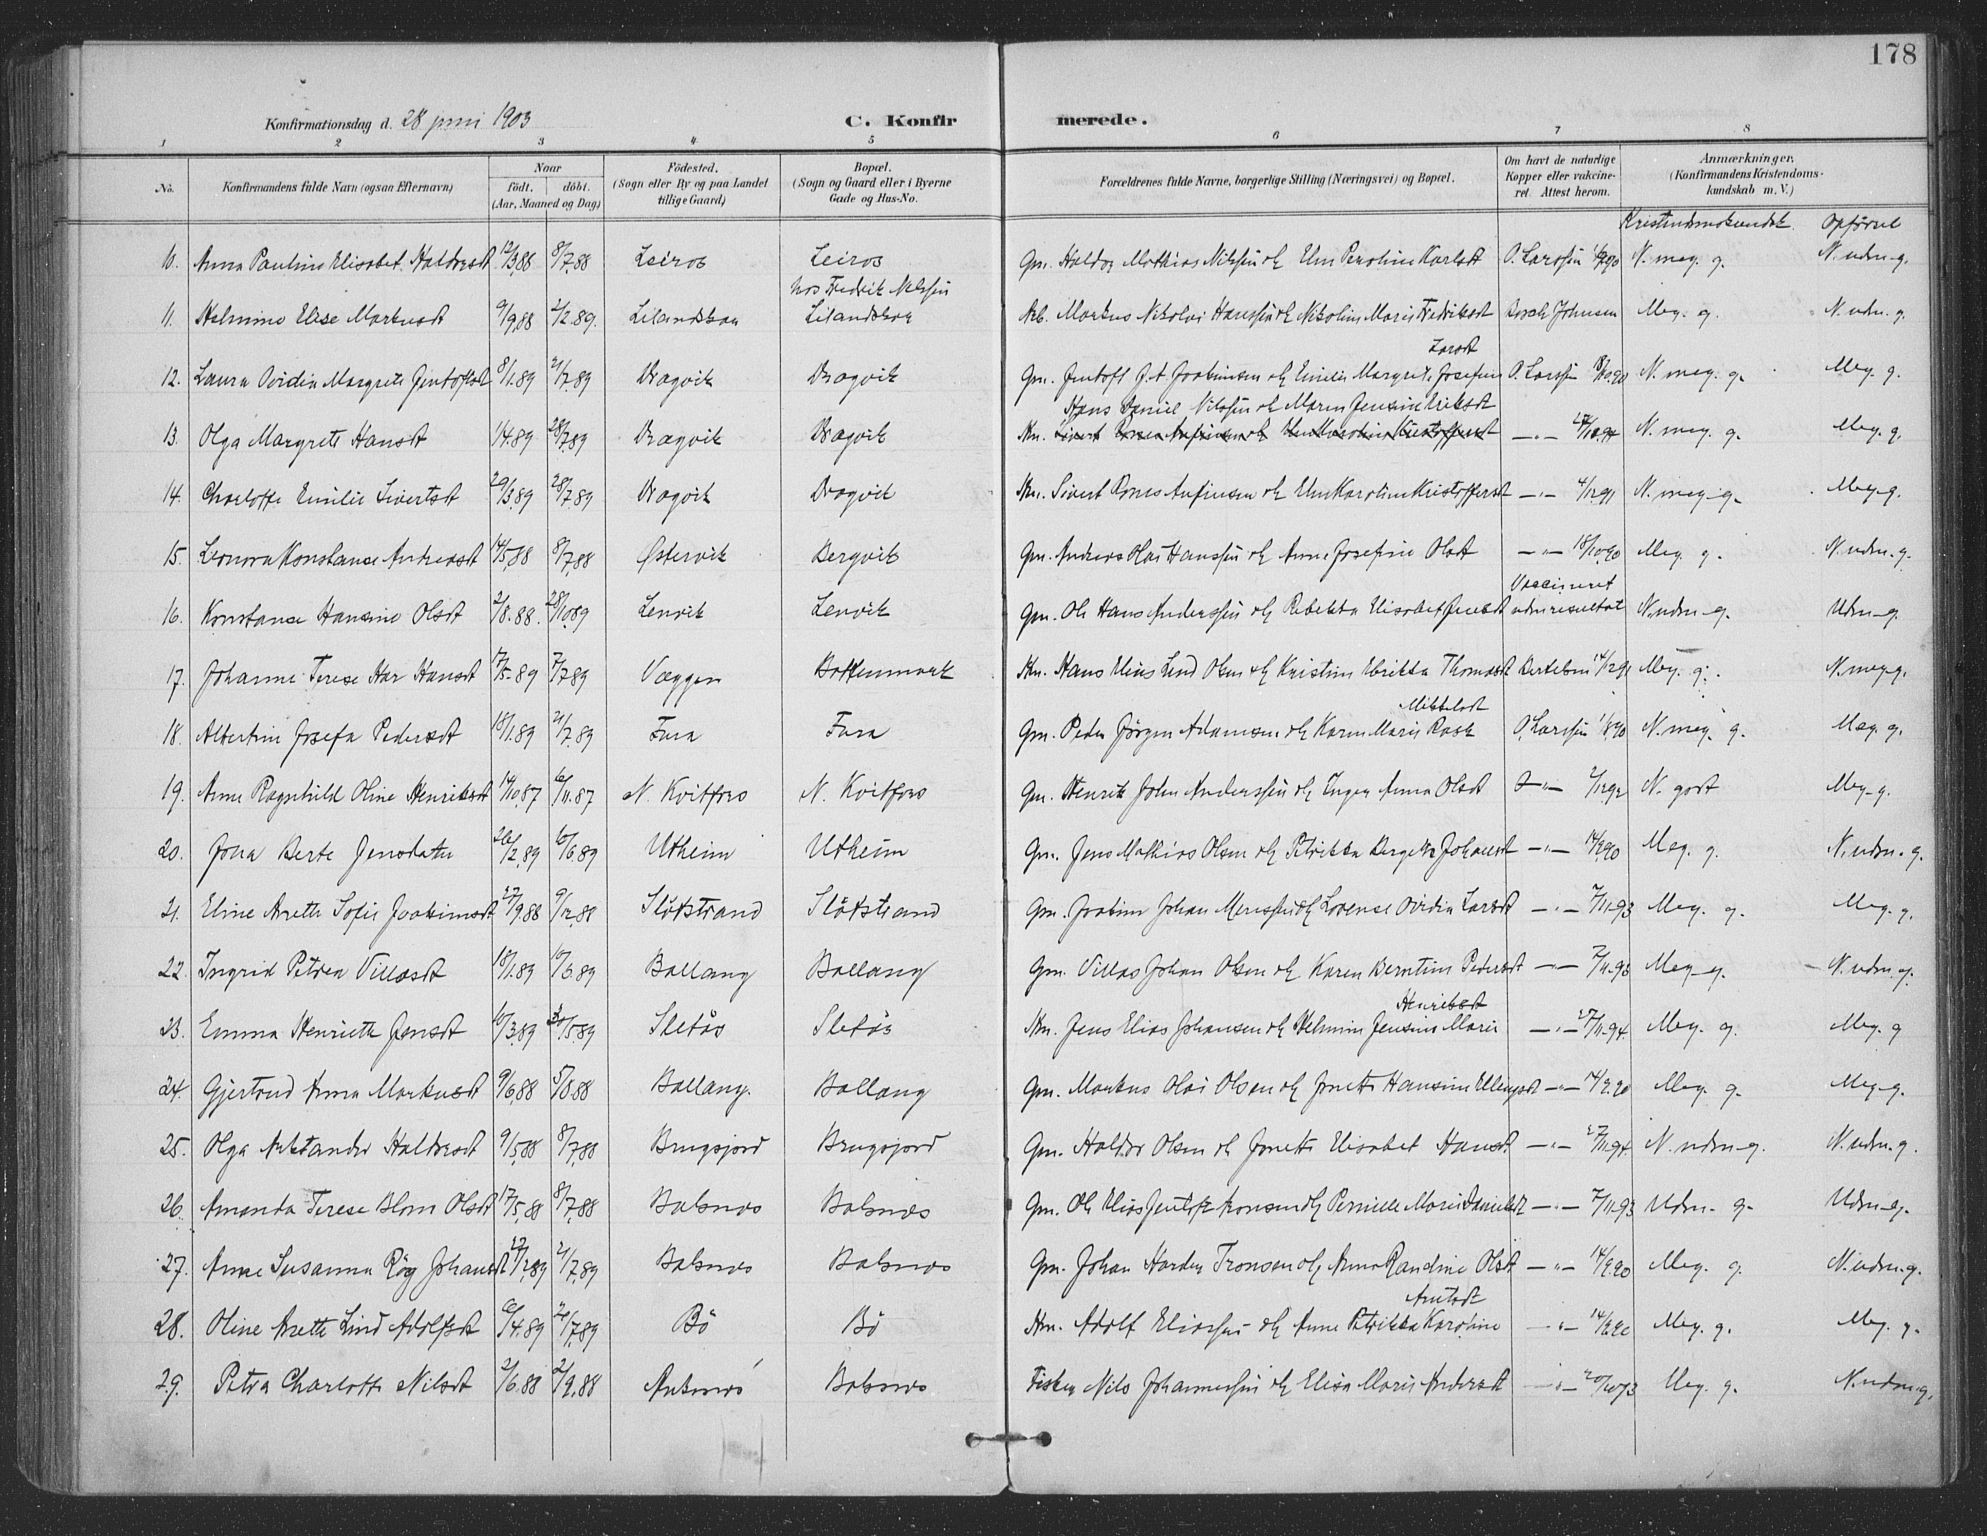 178
Konfirmationsdag d. 28 juni 1903 C. Konfirmerede.
1 2 3 4 5 6 7 8
No. Konfirmandens fulde Navn (ogsaa Efternavn) Naar født. døbt. (Aar, Maaned og Dag) Födested. (Sogn eller By og paa Landet tillige Gaard) Bopæl. (Sogn og Gaard eller i Byerne Gade og Hus-No. Forældrenes fulde Navne, borgerlige Stilling (Næringsvei) og Bopæl. Om havt de naturlige Kopper eller vakcineret. Attest herom. Anmærkninger. (Konfirmandens Kristendomskundskab m. V.)
Kristendomskundsk. Opførsel
10. Anna Pauline Elisabet Haldorsdt 12/3.88 8/7.88 Leiros Leiros Gm. Haldor Mathias Nilssen og Pernoline Karlsdt O. Larssen N. meg. g. N. udm. g.
hos Fredrik Nilssen
11. Helmine Elise Markusdt 9/9.88 2/2.89. Lilandskar Lilandskar Arb. Markus Nikolai Hanssen og Nikoline Marie Fredriksdt Johnsen Meg. g. N. udm. g.
Larsdt
12. Laura Ovidia Margrete Jentoftsdt 8/1.89 21/7.89 Dragvik Dragvik Gm. Jentoft Joakimsen og Emilie Margrete Josefine O. Larssen N. meg. g. Meg. g.
Hans Daniel Nilssen og Maren Jensine Eriksdt
13. Olga Margrete Hansdt 1/4.89 28/7.89 Dragvik Dragvik N. meg. g. Meg. g.
14. Charlotte Emilie Sivertsdt 29/3.89 28/7.89 Dragvik Dragvik Sivert Rones Anfinsen og Karoline Kristoffersdt — " — 4/12.91 N. meg. g. Meg. g.
15. Leonora Konstanse Andreasdt 14/5.88 8/7.88 Østervik Bergvik Gm. Andreas Olai Hanssen og Anne Josefine Olsdt — " — 18/10.90 Meg. g. N. udm. g.
Vaccineret
16. Konstanse Hansine Olsdt 2/8.88. 28/10.89 Lenvik Lenvik Gm. Ole Hans Anderssen og Rebekka Elisabet Jensdt uden resultat N. udm. g. Udm. g.
17. Johanne Terese Hansdt 17/5.89 7/7.89 Væggen Botenmark Hans Elias Lind Olsen og Kristine Ulrikka Thomasdt Bertelsen 14/12.91 Meg. g. N. meg. g.
Mikkelsdt
18. Albertine Josefa Pedersdt 18/1.89 21/7.89 Fara Fara Gm. Peder Jörgen Adamsen og Karen Marie Rask O. Larssen N. meg. g. Meg. g.
19. Anne Ragnhild Oline Henriksdt 14/10.87 6/11.87 N. Kvitfors N. Kvitfors Gm. Henrik John Anderssen og Inger Anna Olsdt — " — 2/12.92 N. godt Meg. g.
20. Jona Berte Jensdatter 26/2.89 10/6.89 Utheim Utheim Gm. Jens Mathias Olsen og Petrikka Bergette Johansdt — " — 14/9.90 Meg. g. N. udm. g.
21. Eline Anette Sofie Joakimsdt 27/9.88 9/12.88 Sløkstrand Sløkstrand Gm. Joakim Johan og Lovense Ovidia Larsdt — " — 7/11.93 Meg. g. Meg. g.
22. Ingrid Petrea Villasdt 18/1.89 10/6.89 Ballang Ballang Gm. Villas Johan Olsen og Karen Berntine Pedersdt — " — 7/11.93 Meg. g. N. udm. g.
Henriksdt
23. Emma Henriette Jensdt 10/3.89 30/5.89 Sletås Sletås Jens Elias Johansen og Helmine Jensine Marie — " — 27/11.94. Meg. g. Meg. g
24. Gjertrud Anna Markusdt 9/6.88 5/8.88 Ballang. Ballang Gm. Markus Olai Olsen og Jonette Hansine Ellingsdt — " — 14/9.90 Meg. g. Meg. g.
25. Olga Haldorsdt 9/5.88 8/7.88 Brugsjord Brugsjord Gm. Haldor Olsen og Jonette Elisabet Hansdt — " — 27/11.94 N. udm. g. N. udm. g.
26. Amanda Terese Blom Olsdt 17/5.88 8/7.88 Balsnes Balsnes Gm. Ole Elias Jentoft Aronsen og Pernille Marie Danielsdt — " — 7/11.93 Udm. g. Udm. g.
27. Anne Susanna Røg Johansdt 21/7.89 Balsnes Balsnes Gm. Johan Harder Tronsen og Anna Randine Olsdt — " — 14/9.90 Meg. g. N. udm. g.
Arntsdt
28. Oline Anette Lind Adolfsdt 6/4.89 21/7.89 Bö Bö Adolf Eliassen og Anne Petrikka Karoline — " — 14/9.90 Meg. g. Meg. g.
29. Petra Charlotte Nilsdt 2/6.88 2/9.88 Balsnes Fisker Nils Johannessen og Elisa Marie Andersdt — " — Meg. g. N. udm. g.